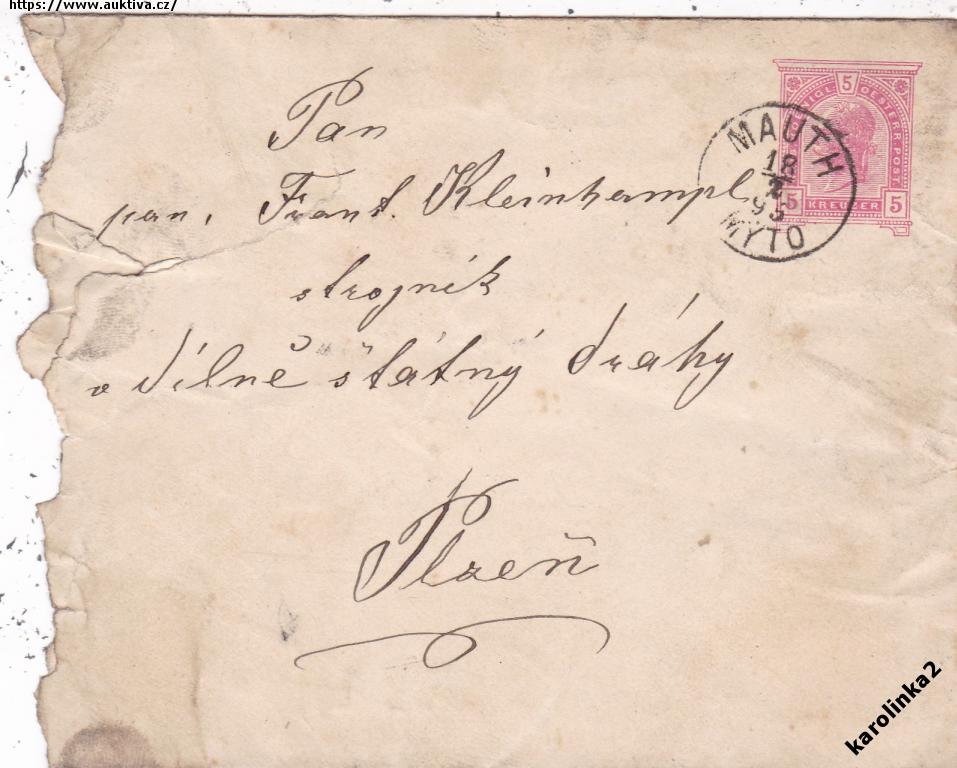 https://www.auktiva.cz/
Pan
pan. Frant. Kleinhampl
strojník
v dílně státný dráhy
Plzeň
5
OESTERR. POST
5 KREUZER 5
MAUTH
18
2
95
MÝTO
karolinka2